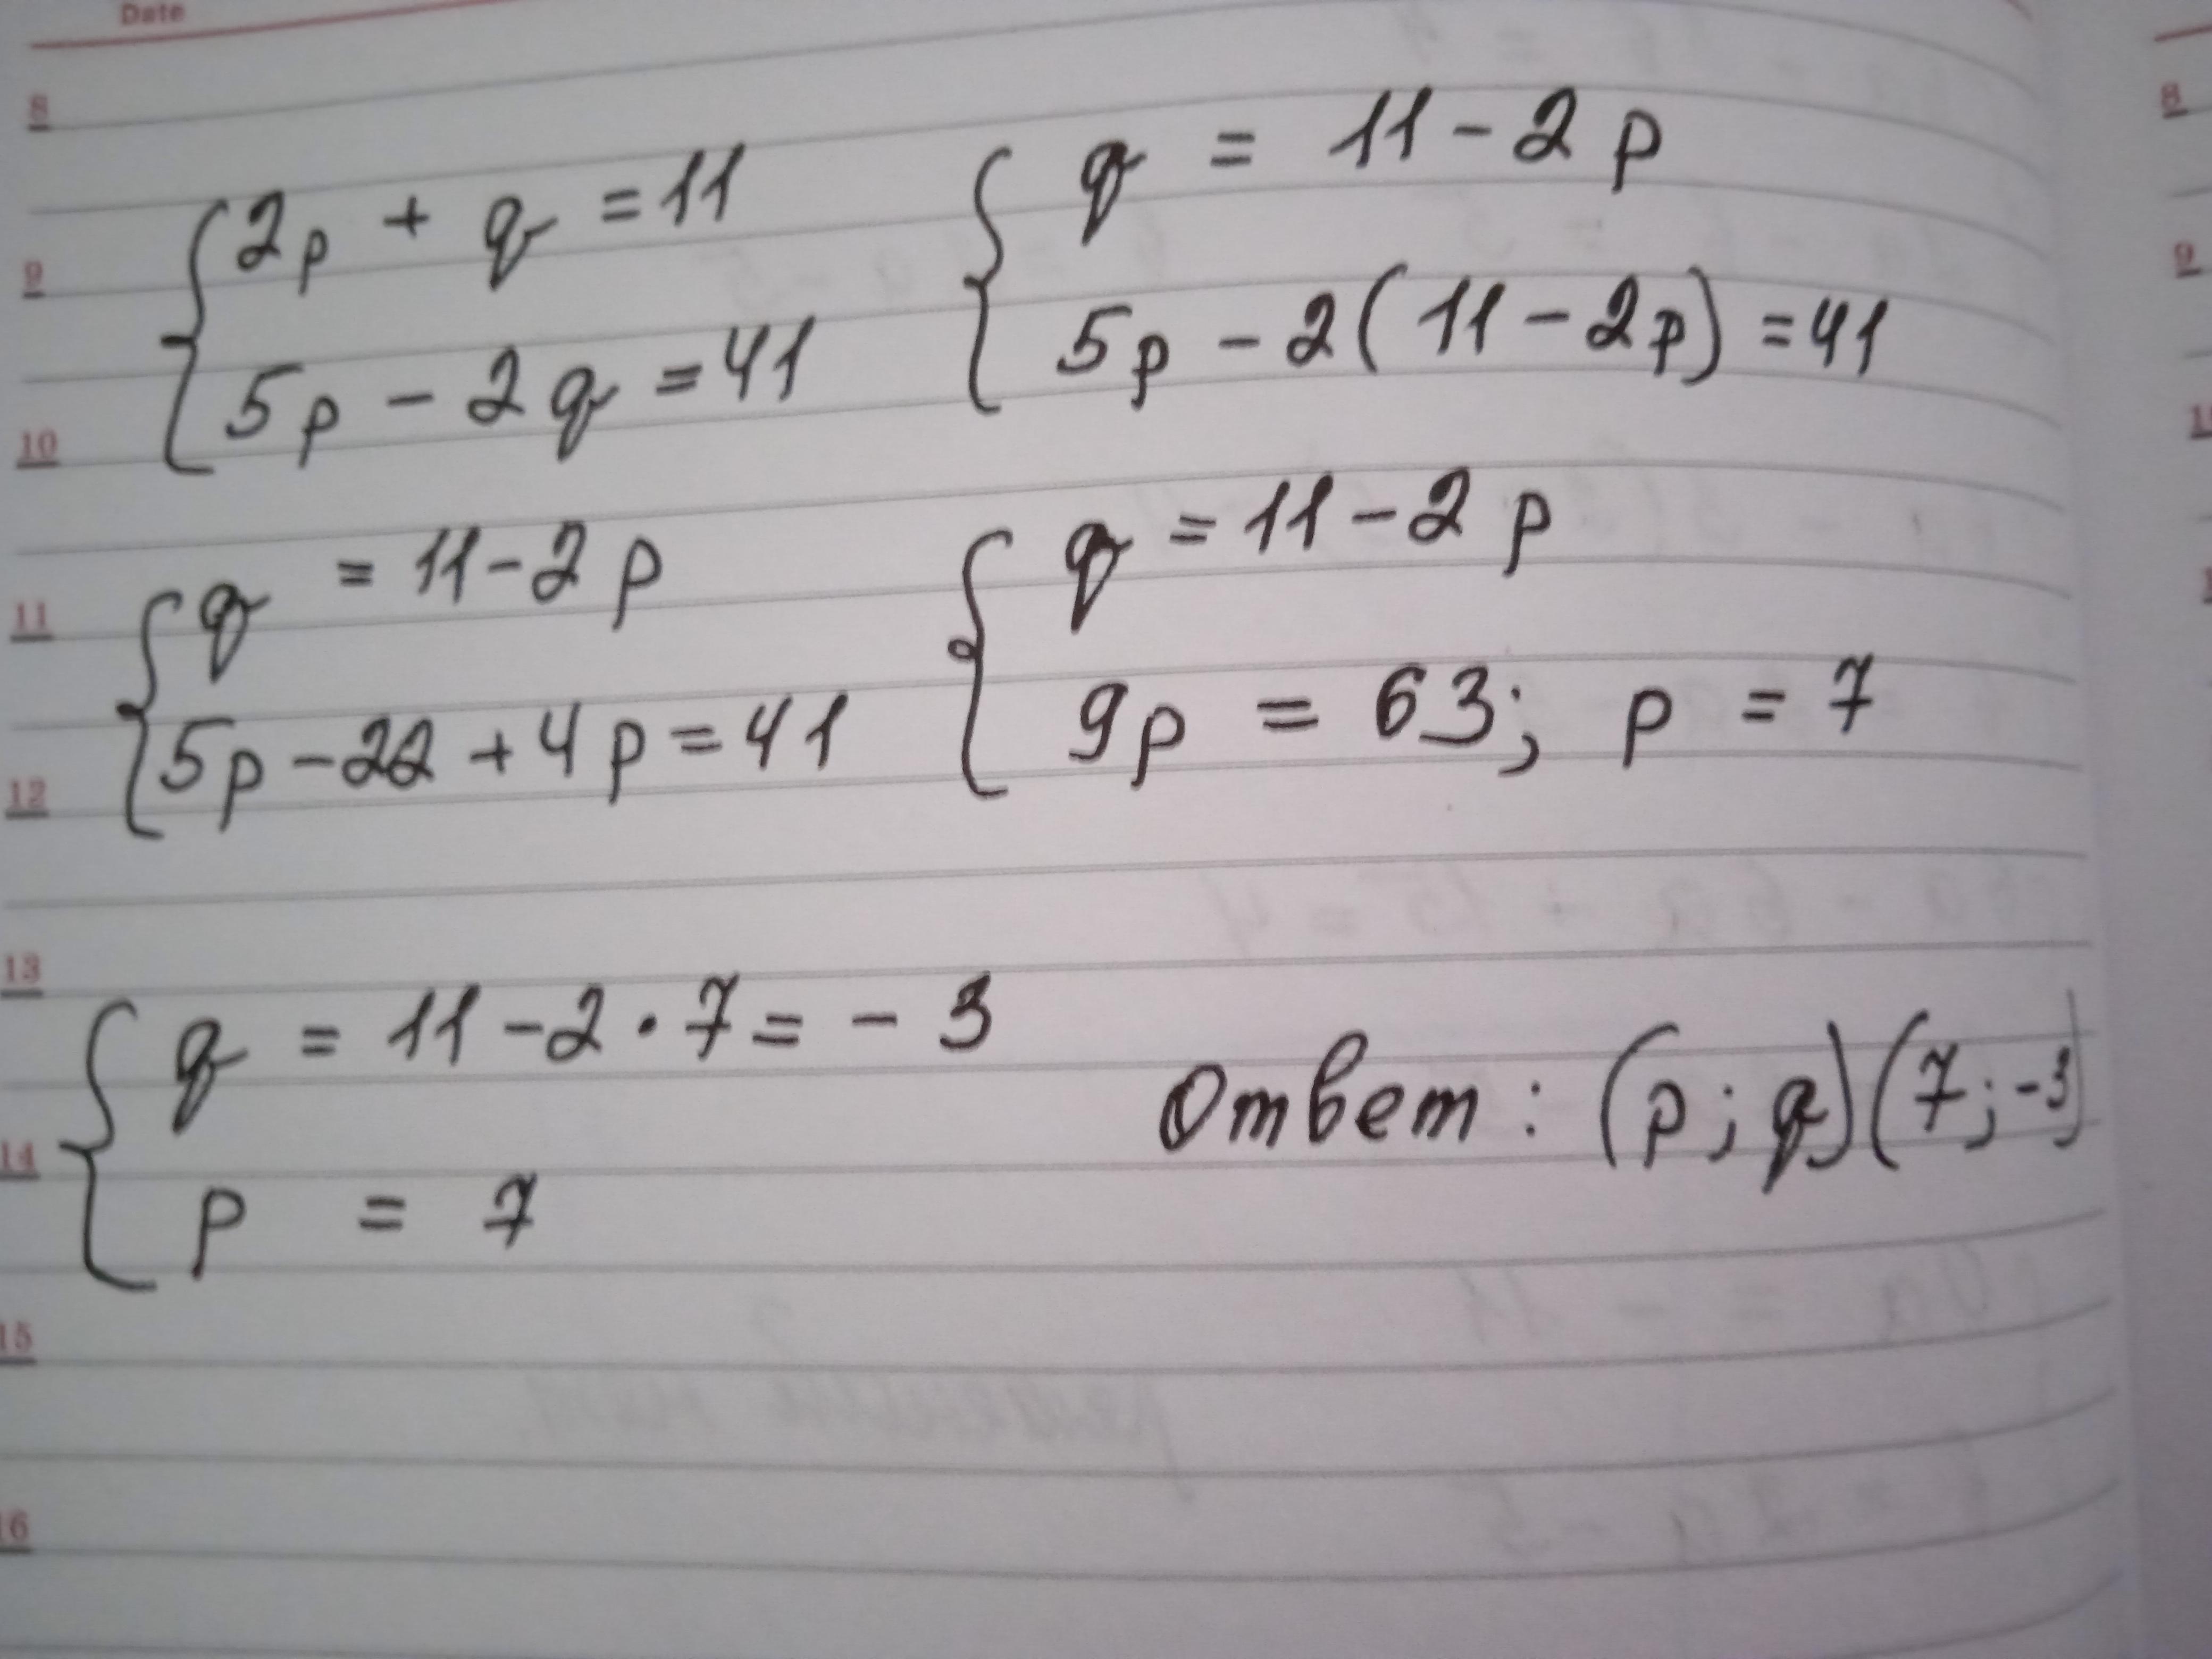 Date
8
{ 2p + q = 11
9
5p - 2q = 41
10
{ q = 11 - 2p
5p - 2(11 - 2p) = 41
{ q = 11 - 2p
11
5p - 22 + 4p = 41
12
{ q = 11 - 2p
9p = 63; p = 7
13
{ q = 11 - 2 · 7 = - 3
14
p = 7
Ответ: (p; q) (7; -3)
15
16
8
9